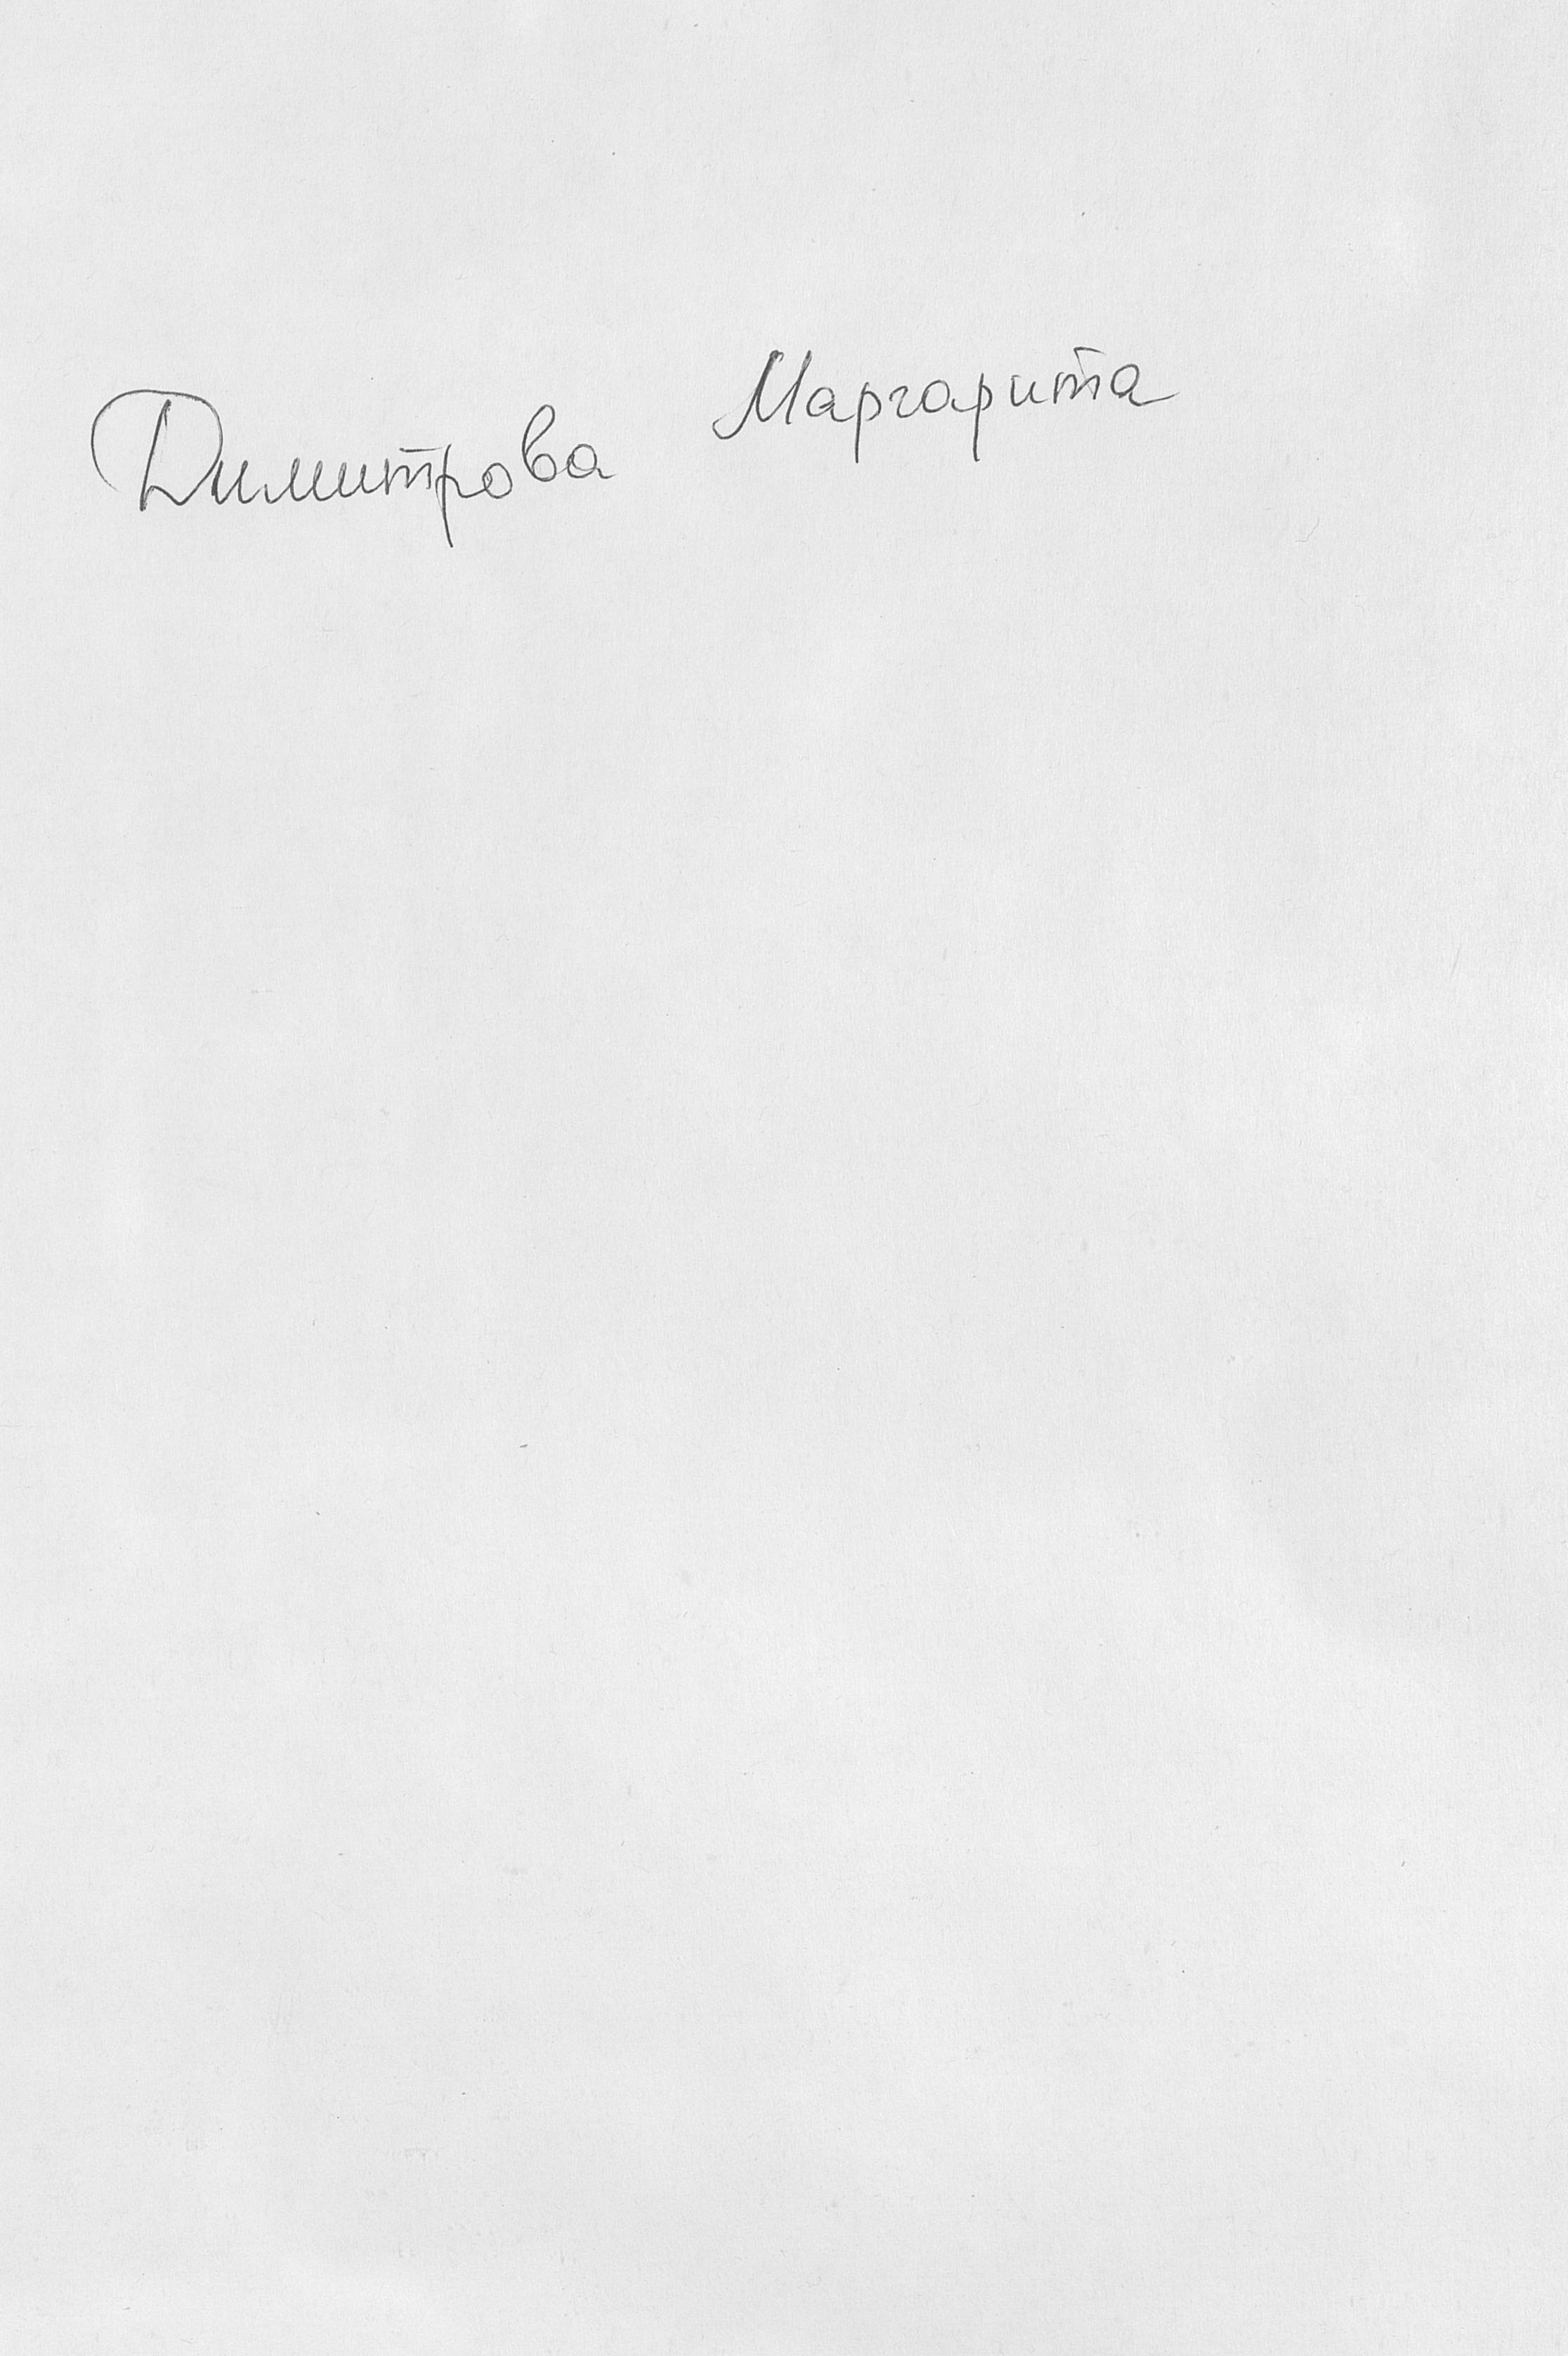 Димитрова Маргарита